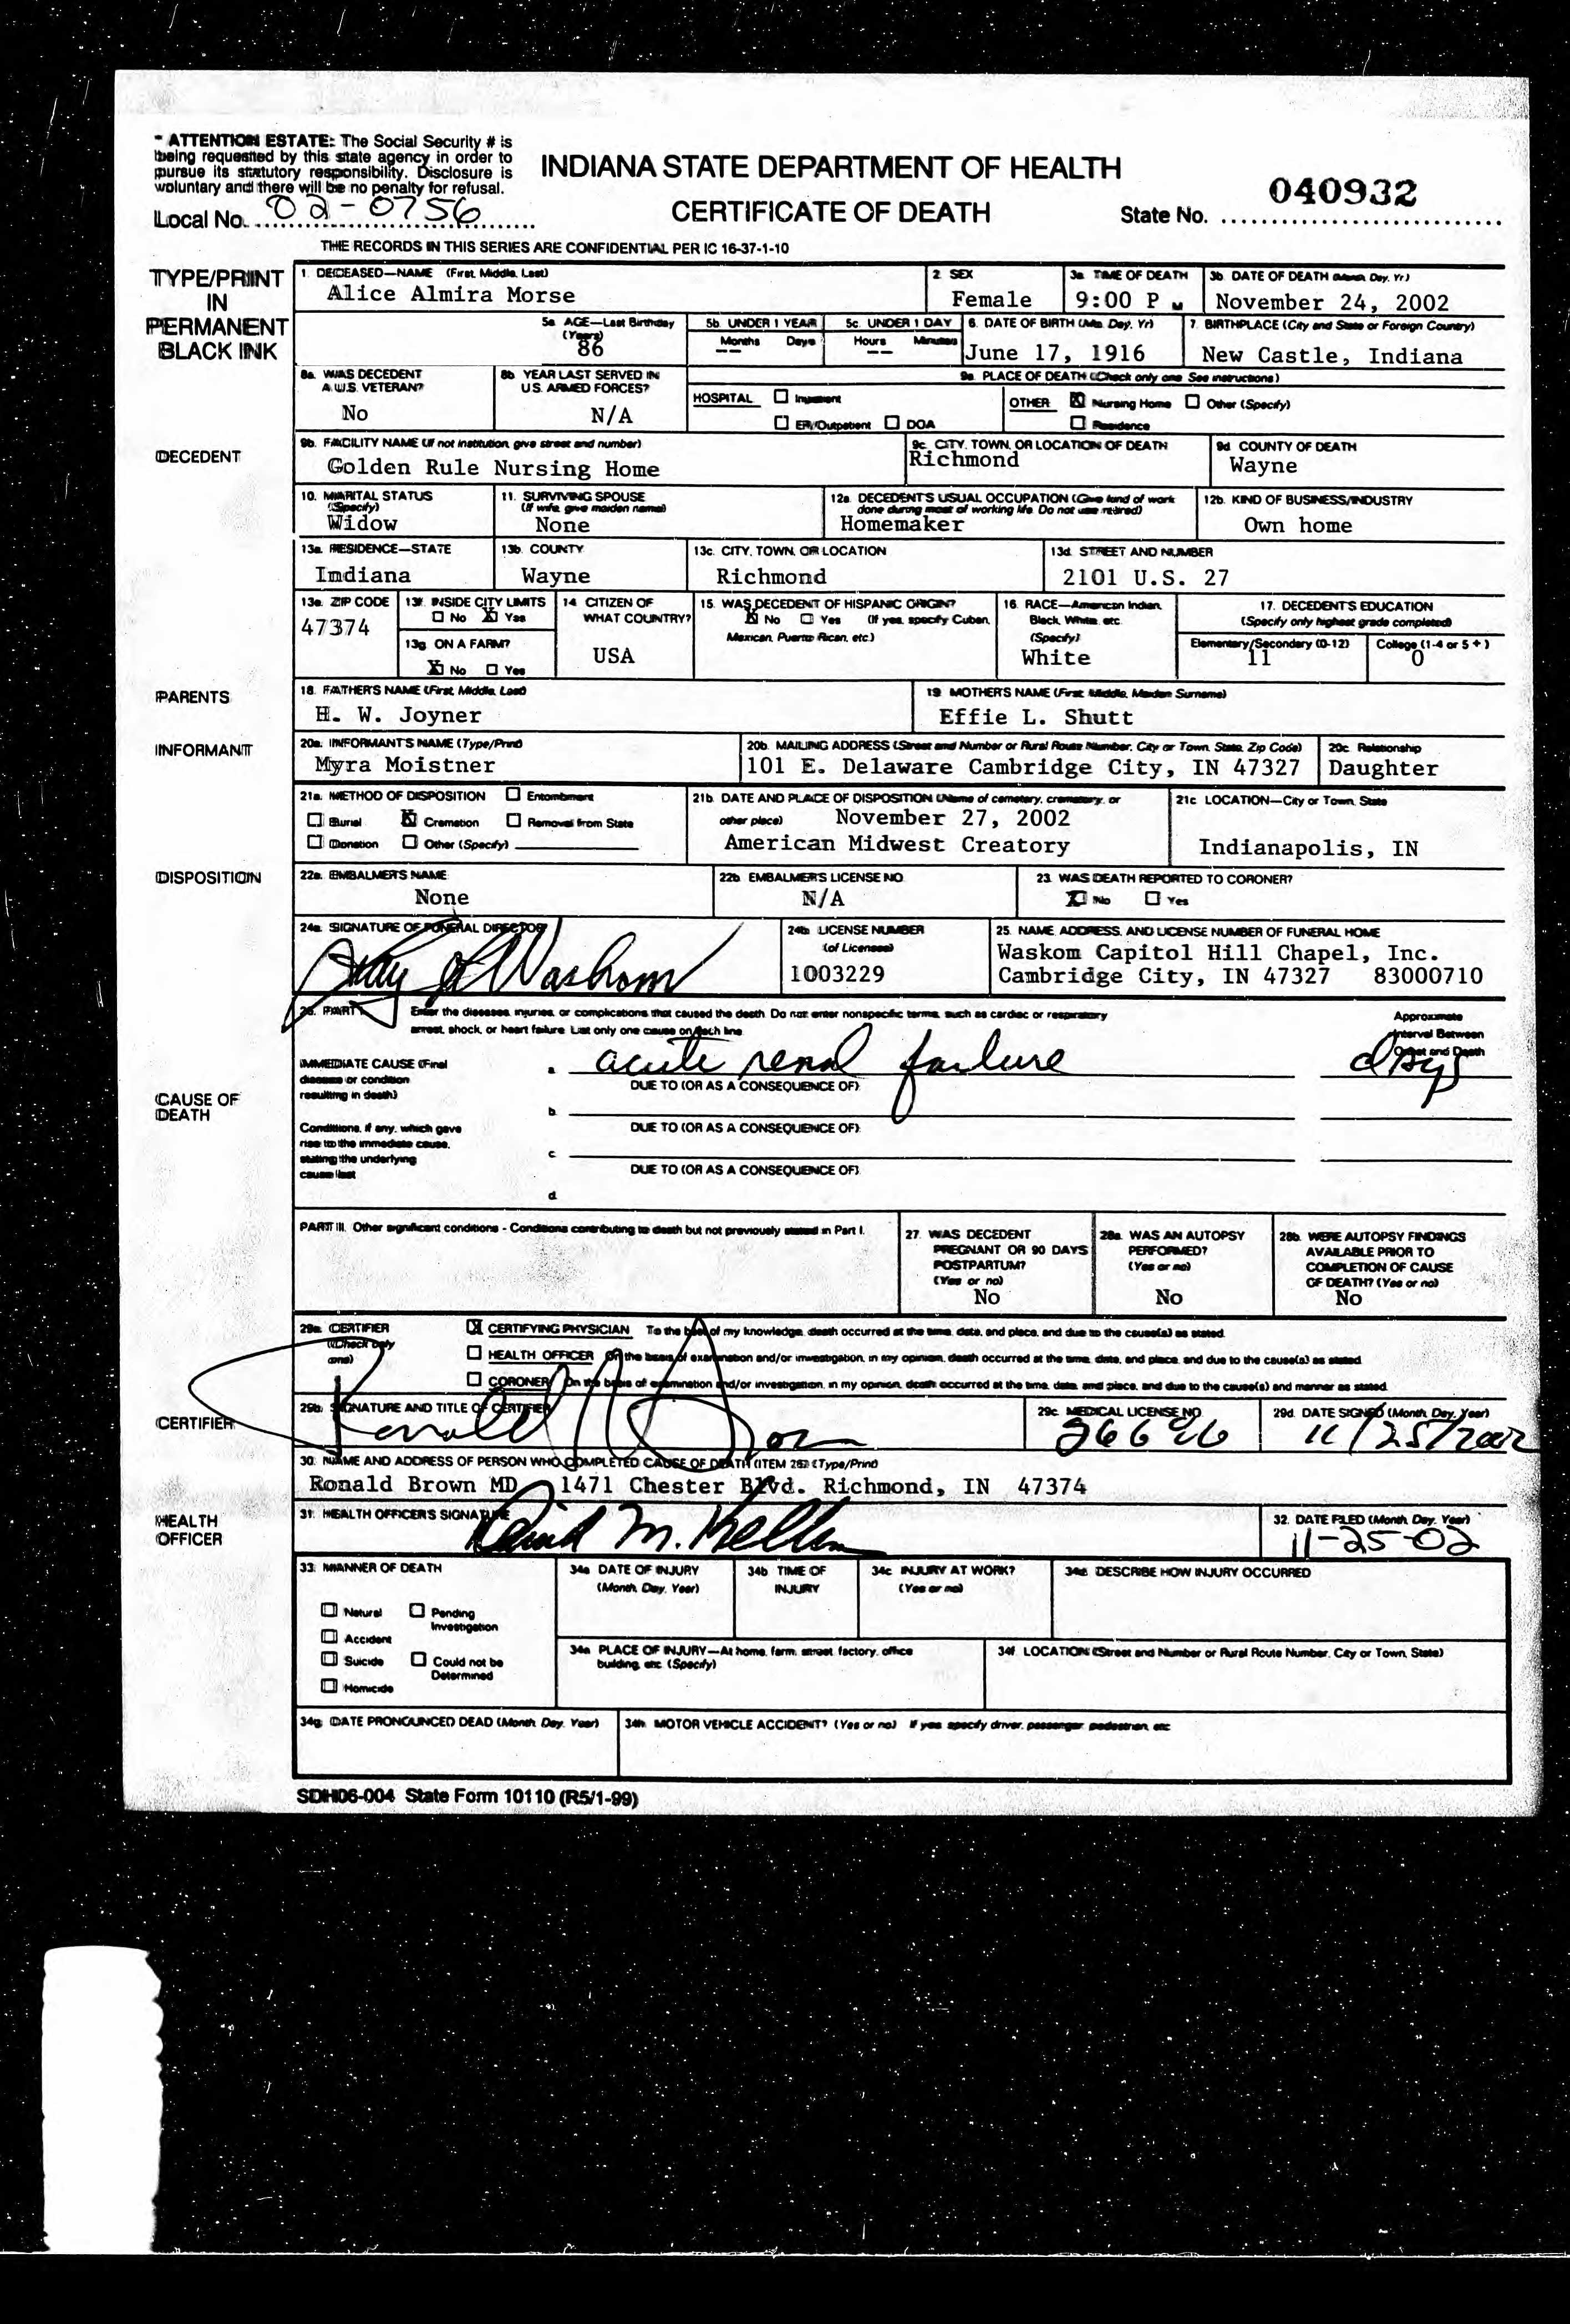 * ATTENTION ESTATE: The Social Security # is
being requested by this state agency in order to
pursue its statutory responsibility. Disclosure is
voluntary and there will be no penalty for refusal.
Local No. 02-0756
INDIANA STATE DEPARTMENT OF HEALTH
CERTIFICATE OF DEATH
State No. 040932
THE RECORDS IN THIS SERIES ARE CONFIDENTIAL PER IC 16-37-1-10
TYPE/PRINT
IN
PERMANENT
BLACK INK
1. DECEASED—NAME (First, Middle, Last)
Alice Almira Morse
2. SEX
Female
3a. TIME OF DEATH
9:00 P M
3b. DATE OF DEATH (Month, Day, Yr.)
November 24, 2002
5a. AGE—Last Birthday
(Years)
86
5b. UNDER 1 YEAR
Months Days
--
5c. UNDER 1 DAY
Hours Minutes
--
6. DATE OF BIRTH (Mo. Day, Yr)
June 17, 1916
7. BIRTHPLACE (City and State or Foreign Country)
New Castle, Indiana
8a. WAS DECEDENT
A U.S. VETERAN?
No
8b. YEAR LAST SERVED IN
U.S. ARMED FORCES?
N/A
9a. PLACE OF DEATH (Check only one. See instructions)
HOSPITAL ☐ Inpatient
☐ ER/Outpatient ☐ DOA
OTHER ☒ Nursing Home ☐ Other (Specify)
☐ Residence
DECEDENT
9b. FACILITY NAME (If not institution, give street and number)
Golden Rule Nursing Home
9c. CITY, TOWN, OR LOCATION OF DEATH
Richmond
9d. COUNTY OF DEATH
Wayne
10. MARITAL STATUS
(Specify)
Widow
11. SURVIVING SPOUSE
(If wife, give maiden name)
None
12a. DECEDENT'S USUAL OCCUPATION (Give kind of work
done during most of working life. Do not use retired)
Homemaker
12b. KIND OF BUSINESS/INDUSTRY
Own home
13a. RESIDENCE—STATE
Imdiana
13b. COUNTY
Wayne
13c. CITY, TOWN, OR LOCATION
Richmond
13d. STREET AND NUMBER
2101 U.S. 27
13e. ZIP CODE
47374
13f. INSIDE CITY LIMITS
☐ No ☒ Yes
13g. ON A FARM?
☒ No ☐ Yes
14. CITIZEN OF
WHAT COUNTRY?
USA
15. WAS DECEDENT OF HISPANIC ORIGIN?
☒ No ☐ Yes (If yes, specify Cuban,
Mexican, Puerto Rican, etc.)
16. RACE—American Indian,
Black, White, etc.
(Specify)
White
17. DECEDENT'S EDUCATION
(Specify only highest grade completed)
Elementary/Secondary (0-12)
11
College (1-4 or 5+)
0
PARENTS
18. FATHER'S NAME (First, Middle, Last)
H. W. Joyner
19. MOTHER'S NAME (First, Middle, Maiden Surname)
Effie L. Shutt
INFORMANT
20a. INFORMANT'S NAME (Type/Print)
Myra Moistner
20b. MAILING ADDRESS (Street and Number or Rural Route Number, City or Town, State, Zip Code)
101 E. Delaware Cambridge City, IN 47327
20c. Relationship
Daughter
21a. METHOD OF DISPOSITION ☐ Entombment
☐ Burial ☒ Cremation ☐ Removal from State
☐ Donation ☐ Other (Specify)
21b. DATE AND PLACE OF DISPOSITION (Name of cemetery, crematory, or
other place) November 27, 2002
American Midwest Creatory
21c. LOCATION—City or Town, State
Indianapolis, IN
DISPOSITION
22a. EMBALMER'S NAME
None
22b. EMBALMER'S LICENSE NO.
N/A
23. WAS DEATH REPORTED TO CORONER?
☒ No ☐ Yes
24a. SIGNATURE OF FUNERAL DIRECTOR
Waskom
24b. LICENSE NUMBER
(of Licensee)
1003229
25. NAME, ADDRESS, AND LICENSE NUMBER OF FUNERAL HOME
Waskom Capitol Hill Chapel, Inc.
Cambridge City, IN 47327 83000710
26. PART I. Enter the diseases, injuries, or complications that caused the death. Do not enter nonspecific terms, such as cardiac or respiratory
arrest, shock, or heart failure. List only one cause on each line.
Approximate
Interval Between
Onset and Death
CAUSE OF
DEATH
IMMEDIATE CAUSE (Final
disease or condition
resulting in death)
a. acute renal failure
days
DUE TO (OR AS A CONSEQUENCE OF):
b.
Conditions, if any, which gave
rise to the immediate cause,
stating the underlying
cause last
DUE TO (OR AS A CONSEQUENCE OF):
c.
DUE TO (OR AS A CONSEQUENCE OF):
d.
PART II. Other significant conditions - Conditions contributing to death but not previously stated in Part I.
27. WAS DECEDENT
PREGNANT OR 90 DAYS
POSTPARTUM?
(Yes or no)
No
28a. WAS AN AUTOPSY
PERFORMED?
(Yes or no)
No
28b. WERE AUTOPSY FINDINGS
AVAILABLE PRIOR TO
COMPLETION OF CAUSE
OF DEATH? (Yes or no)
No
29a. CERTIFIER
(Check only
one)
☒ CERTIFYING PHYSICIAN To the best of my knowledge, death occurred at the time, date, and place, and due to the cause(s) as stated.
☐ HEALTH OFFICER On the basis of examination and/or investigation, in my opinion, death occurred at the time, date, and place, and due to the cause(s) as stated.
☐ CORONER On the basis of examination and/or investigation, in my opinion, death occurred at the time, date, and place, and due to the cause(s) and manner as stated.
CERTIFIER
29b. SIGNATURE AND TITLE OF CERTIFIER
Ronald
29c. MEDICAL LICENSE NO.
29d. DATE SIGNED (Month, Day, Year)
11/25/2002
30. NAME AND ADDRESS OF PERSON WHO COMPLETED CAUSE OF DEATH (ITEM 26) (Type/Print)
Ronald Brown MD 1471 Chester Blvd. Richmond, IN 47374
HEALTH
OFFICER
31. HEALTH OFFICER'S SIGNATURE
David M. Keller
32. DATE FILED (Month, Day, Year)
11-25-02
33. MANNER OF DEATH
☐ Natural ☐ Pending
Investigation
☐ Accident
☐ Suicide ☐ Could not be
Determined
☐ Homicide
34a. DATE OF INJURY
(Month, Day, Year)
34b. TIME OF
INJURY
34c. INJURY AT WORK?
(Yes or no)
34d. DESCRIBE HOW INJURY OCCURRED
34e. PLACE OF INJURY—At home, farm, street, factory, office
building, etc. (Specify)
34f. LOCATION (Street and Number or Rural Route Number, City or Town, State)
34g. DATE PRONOUNCED DEAD (Month, Day, Year)
34h. MOTOR VEHICLE ACCIDENT? (Yes or no) If yes, specify driver, passenger, pedestrian, etc.
SDH06-004 State Form 10110 (R5/1-99)